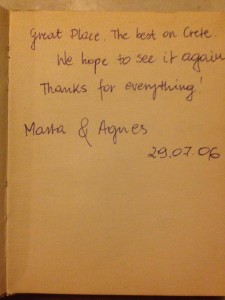 Great Place. The best on Crete.
We hope to see it again
Thanks for everything!
Marta & Agnes
29.07.06